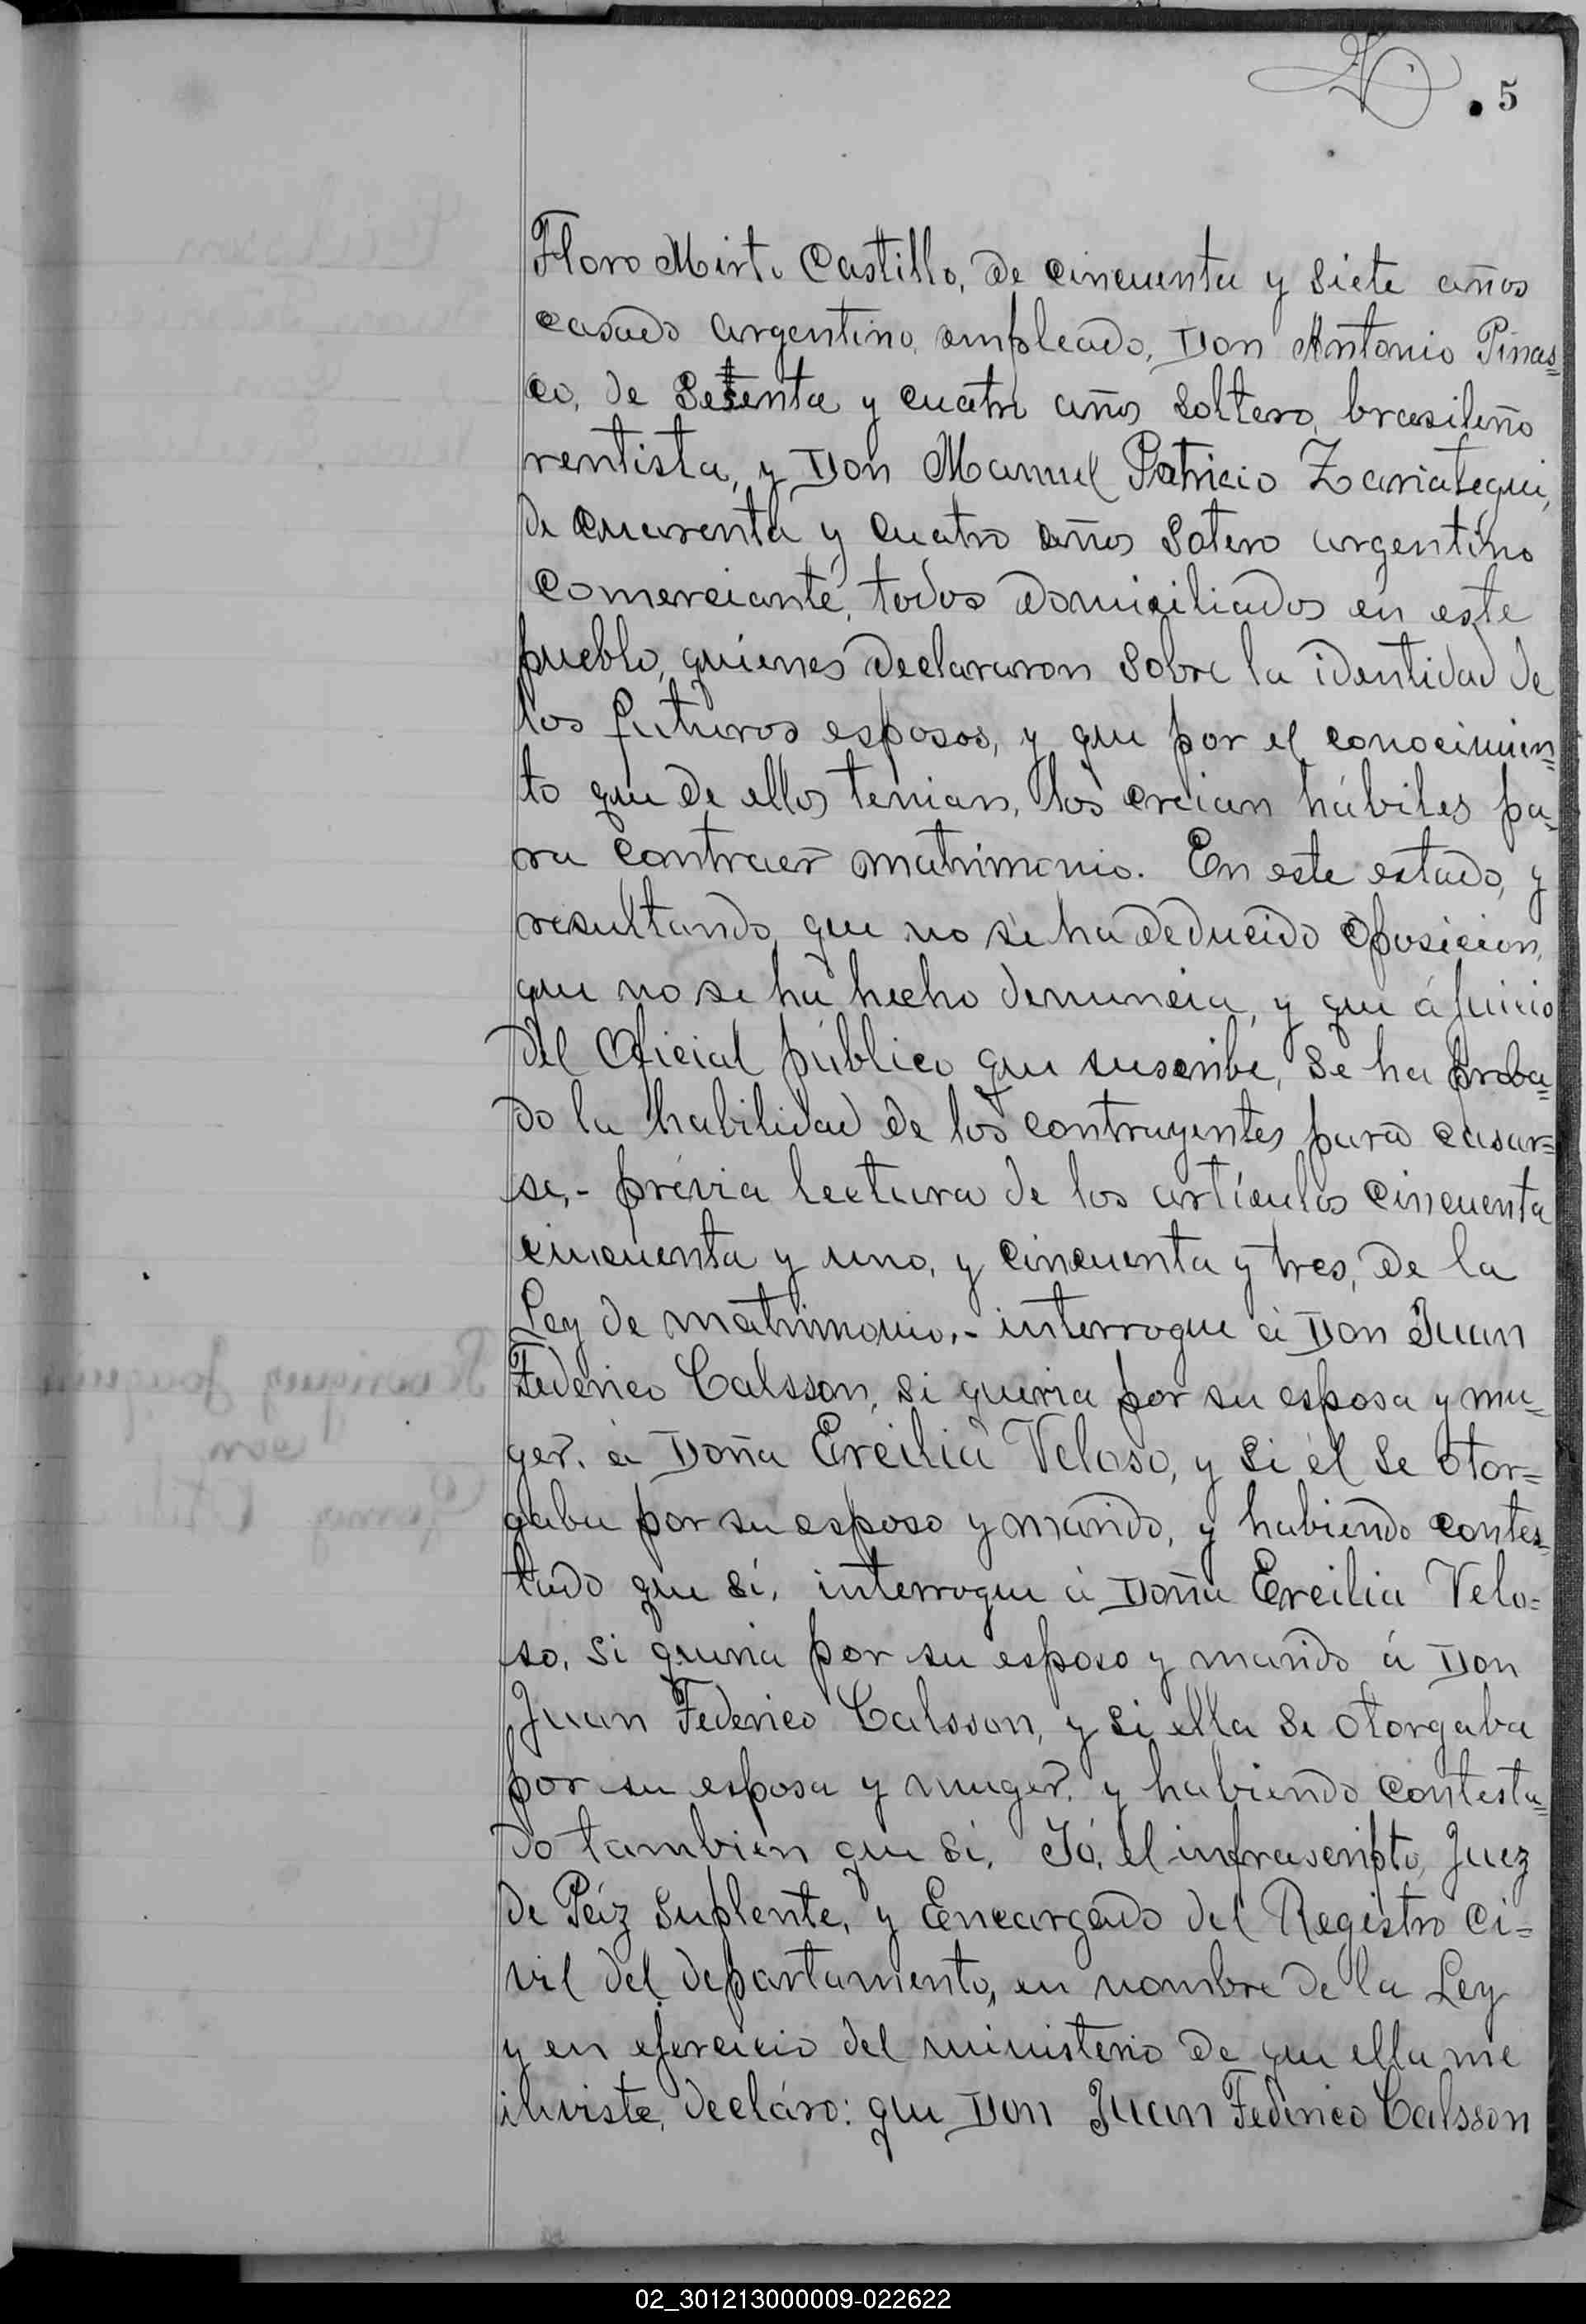 5
Floro Mirto Castillo, de cincuenta y siete años
casado argentino, empleado, Don Antonio Pinas=
co, de setenta y cuatro años soltero, brasileño
rentista, y Don Manuel Patricio Zariategui,
de cuarenta y cuatro años sotero argentino
comerciante, todos domiciliados en este
pueblo, quienes declararon sobre la identidad de
los futuros esposos, y que por el conocimien=
to que de ellos tenian, los creian hábiles pa=
ra contraer matrimonio. En este estado, y
resultando, que no se ha deducido oposicion,
que no se ha hecho denuncia, y que á juicio
del Oficial público que suscribe, se ha proba=
do la habilidad de los contrayentes para casar=
se,- prévia lectura de los artículos cincuenta
cincuenta y uno, y cincuenta y tres, de la
Ley de matrimonio,- interrogue á Don Juan
Federico Calsson, si queria por su esposa y mu=
ger, á Doña Ercilia Veloso, y si él se otor=
gaba por su esposo y marido, y habiendo contes=
tado que sí, interrogue á Doña Ercilia Velo=
so, si queria por su esposo y marido á Don
Juan Federico Calsson, y si ella se otorgaba
por su esposa y muger, y habiendo contesta=
do tambien que si, Yó, el infrascripto, Juez
de Páz Suplente, y Encargado del Registro Ci=
vil del departamento, en nombre de la Ley
y en ejercicio del ministerio de que ella me
inviste, decláro: que Don Juan Federico Calsson
02_301213000009-022622